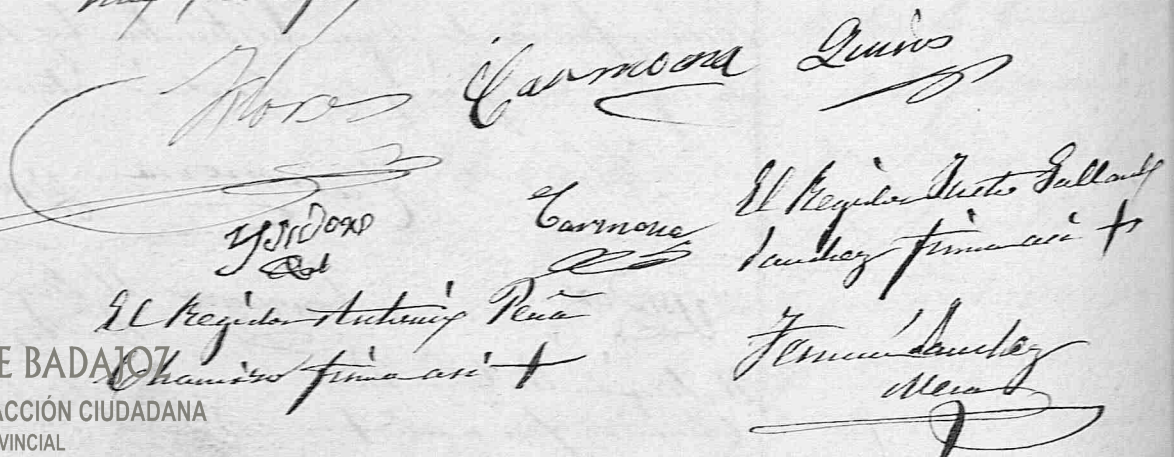 Flores Carmona Quirós
Ysidoro Carmona El Regidor Justo Gallardo
Sanchez firma asi +
El Regidor Antonio Peña
Chamizo firma asi + Fermin Sanchez
Mera
E BADAJOZ
ACCIÓN CIUDADANA
VINCIAL